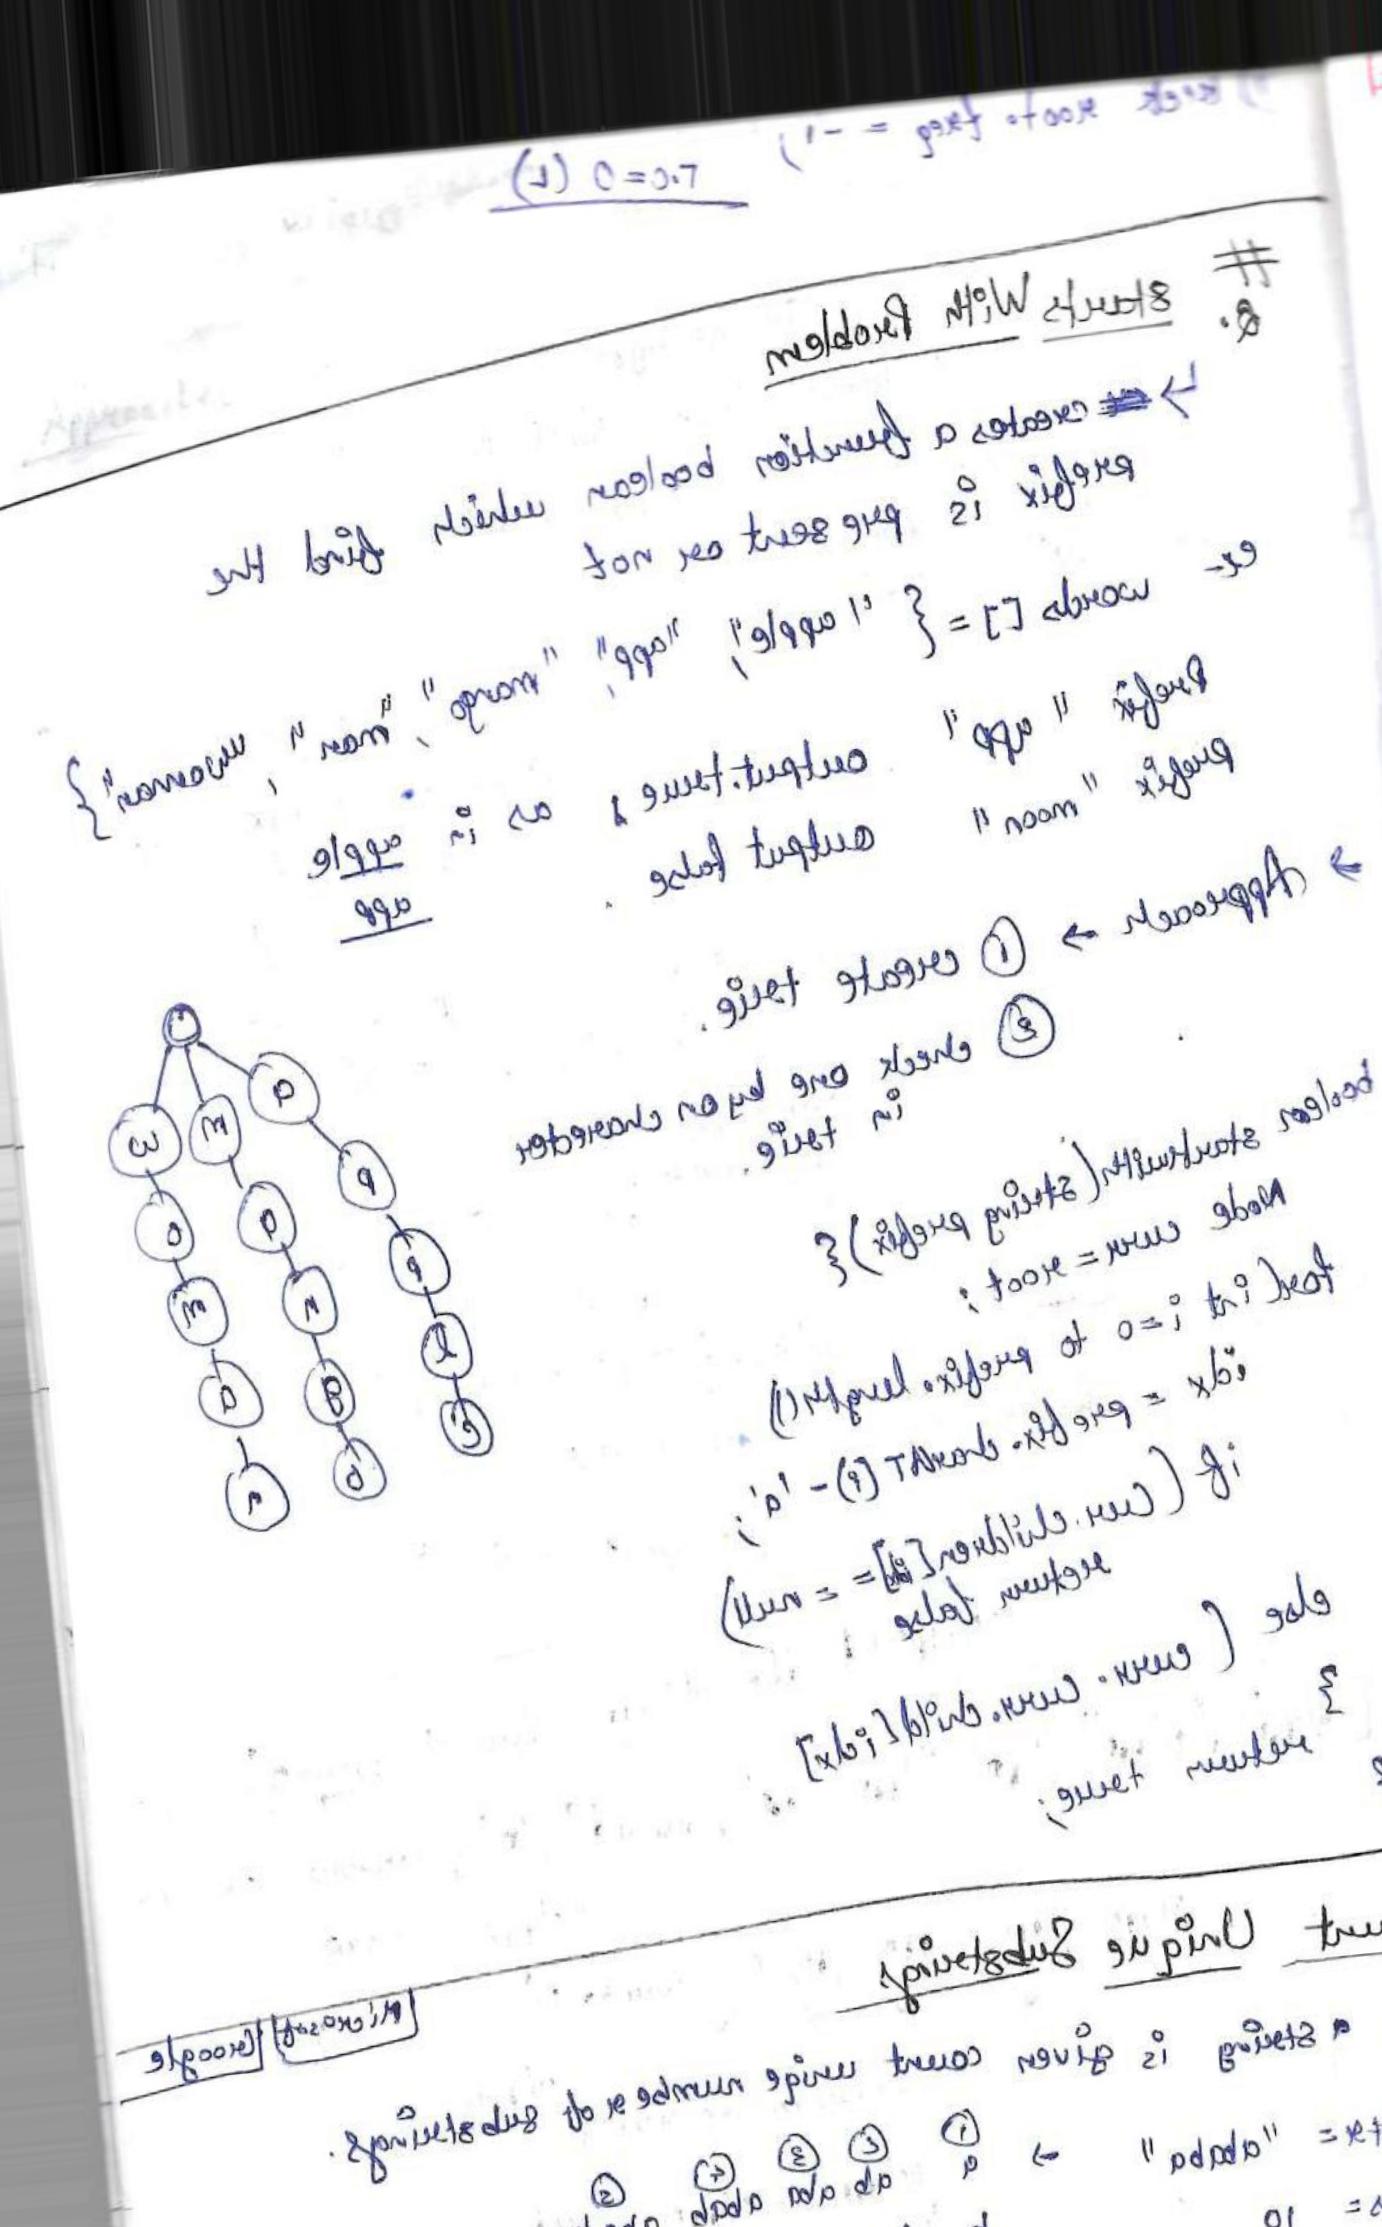 root.freq = -1;
T.C = O(L)
#
Q. Starts With Problem
→ creates a function boolean which find the
prefix is present or not
ex- words [] = { "apple", "app", "mango", "man", "woman" }
Prefix "app" output.true, as in apple
app
prefix "moon" output false.
→ Approach → ① create trie.
② check one by on character
in trie.
w m a
o a p
m n p
a g l
n o e
boolean startwith(string prefix){
Node curr = root;
for( int i=0 to prefix.length()
idx = prefix.charAT(i) - 'a';
if (curr.children[id] == null)
return false
else ( curr. curr.child[idx]
}
return true;
Unique Substrings
Microsoft Google
a string is given count uniqe number of substrings.
= "ababa" → ① a ② ab ③ aba ④ abab ⑤
= 10